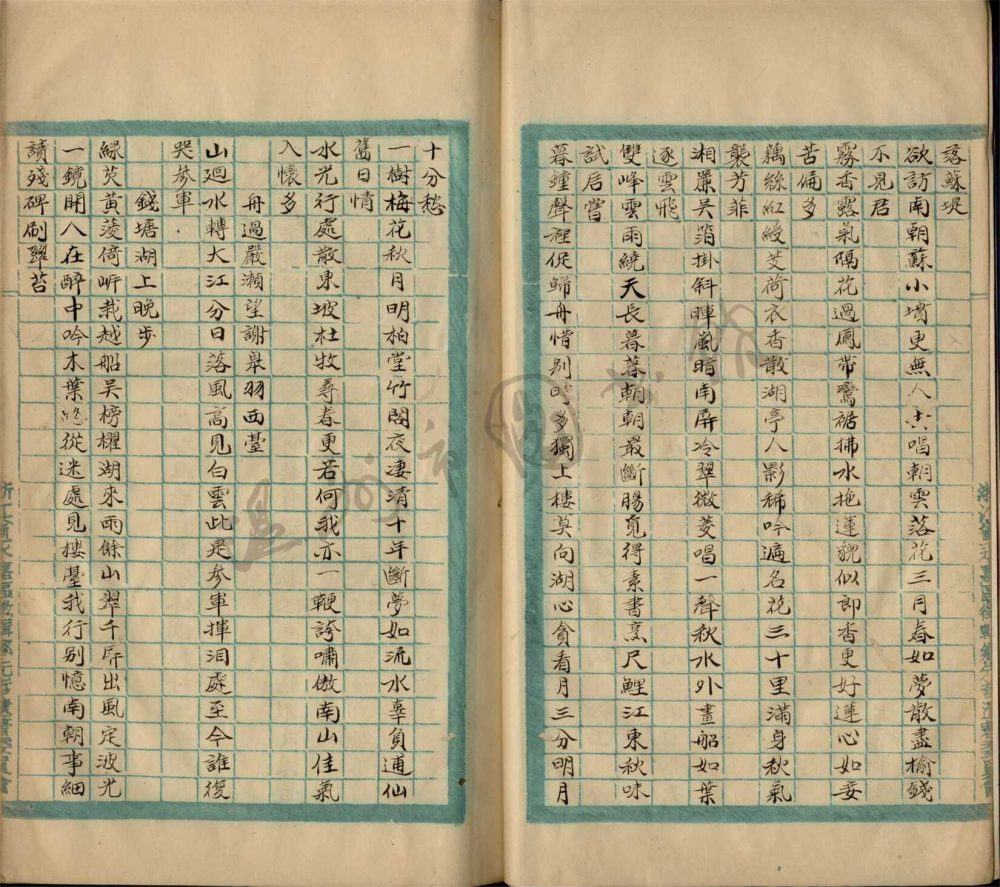 落蘇堤
欲訪南朝蘇小墳更無人唱朝雲落花三月春如夢散盡榆錢
不見君
霧香露氣隔花過鳳帶鸞裾拂水拖蓮貌似郎香更好蓮心如妾
苦偏多
藕絲紅綬芰荷衣香散湖亭人影稀吟遍名花三十里滿身秋氣
襲芳菲
湘簾吳箔掛斜暉嵐暗南屏冷翠微菱唱一聲秋水外畫船如葉
逐雲飛
雙峰雲雨繞天長暮暮朝朝最斷腸覓得素書烹尺鯉江東秋味
試后嘗
暮鐘聲裡促歸舟惜別時多獨上樓莫向湖心貪看月三分明月
十分愁
一樹梅花秋月明柏堂竹閣夜凄清十年斷夢如流水辜負逋仙
舊日情
水光行處散東坡杜牧尋春更若何我亦一鞭誇嘯傲南山佳氣
入懷多
舟過嚴瀨望謝皋羽西臺
山廻水轉大江分日落風高見白雲此是參軍揮淚處至今誰復
哭參軍
錢塘湖上晚步
綠芡黃菱倚岸栽越船吳榜櫂湖來雨餘山翠千屏出風定波光
一鏡開人在醉中吟木葉從迷處見樓臺我行别憶南朝事細
讀殘碑刷蘚苔